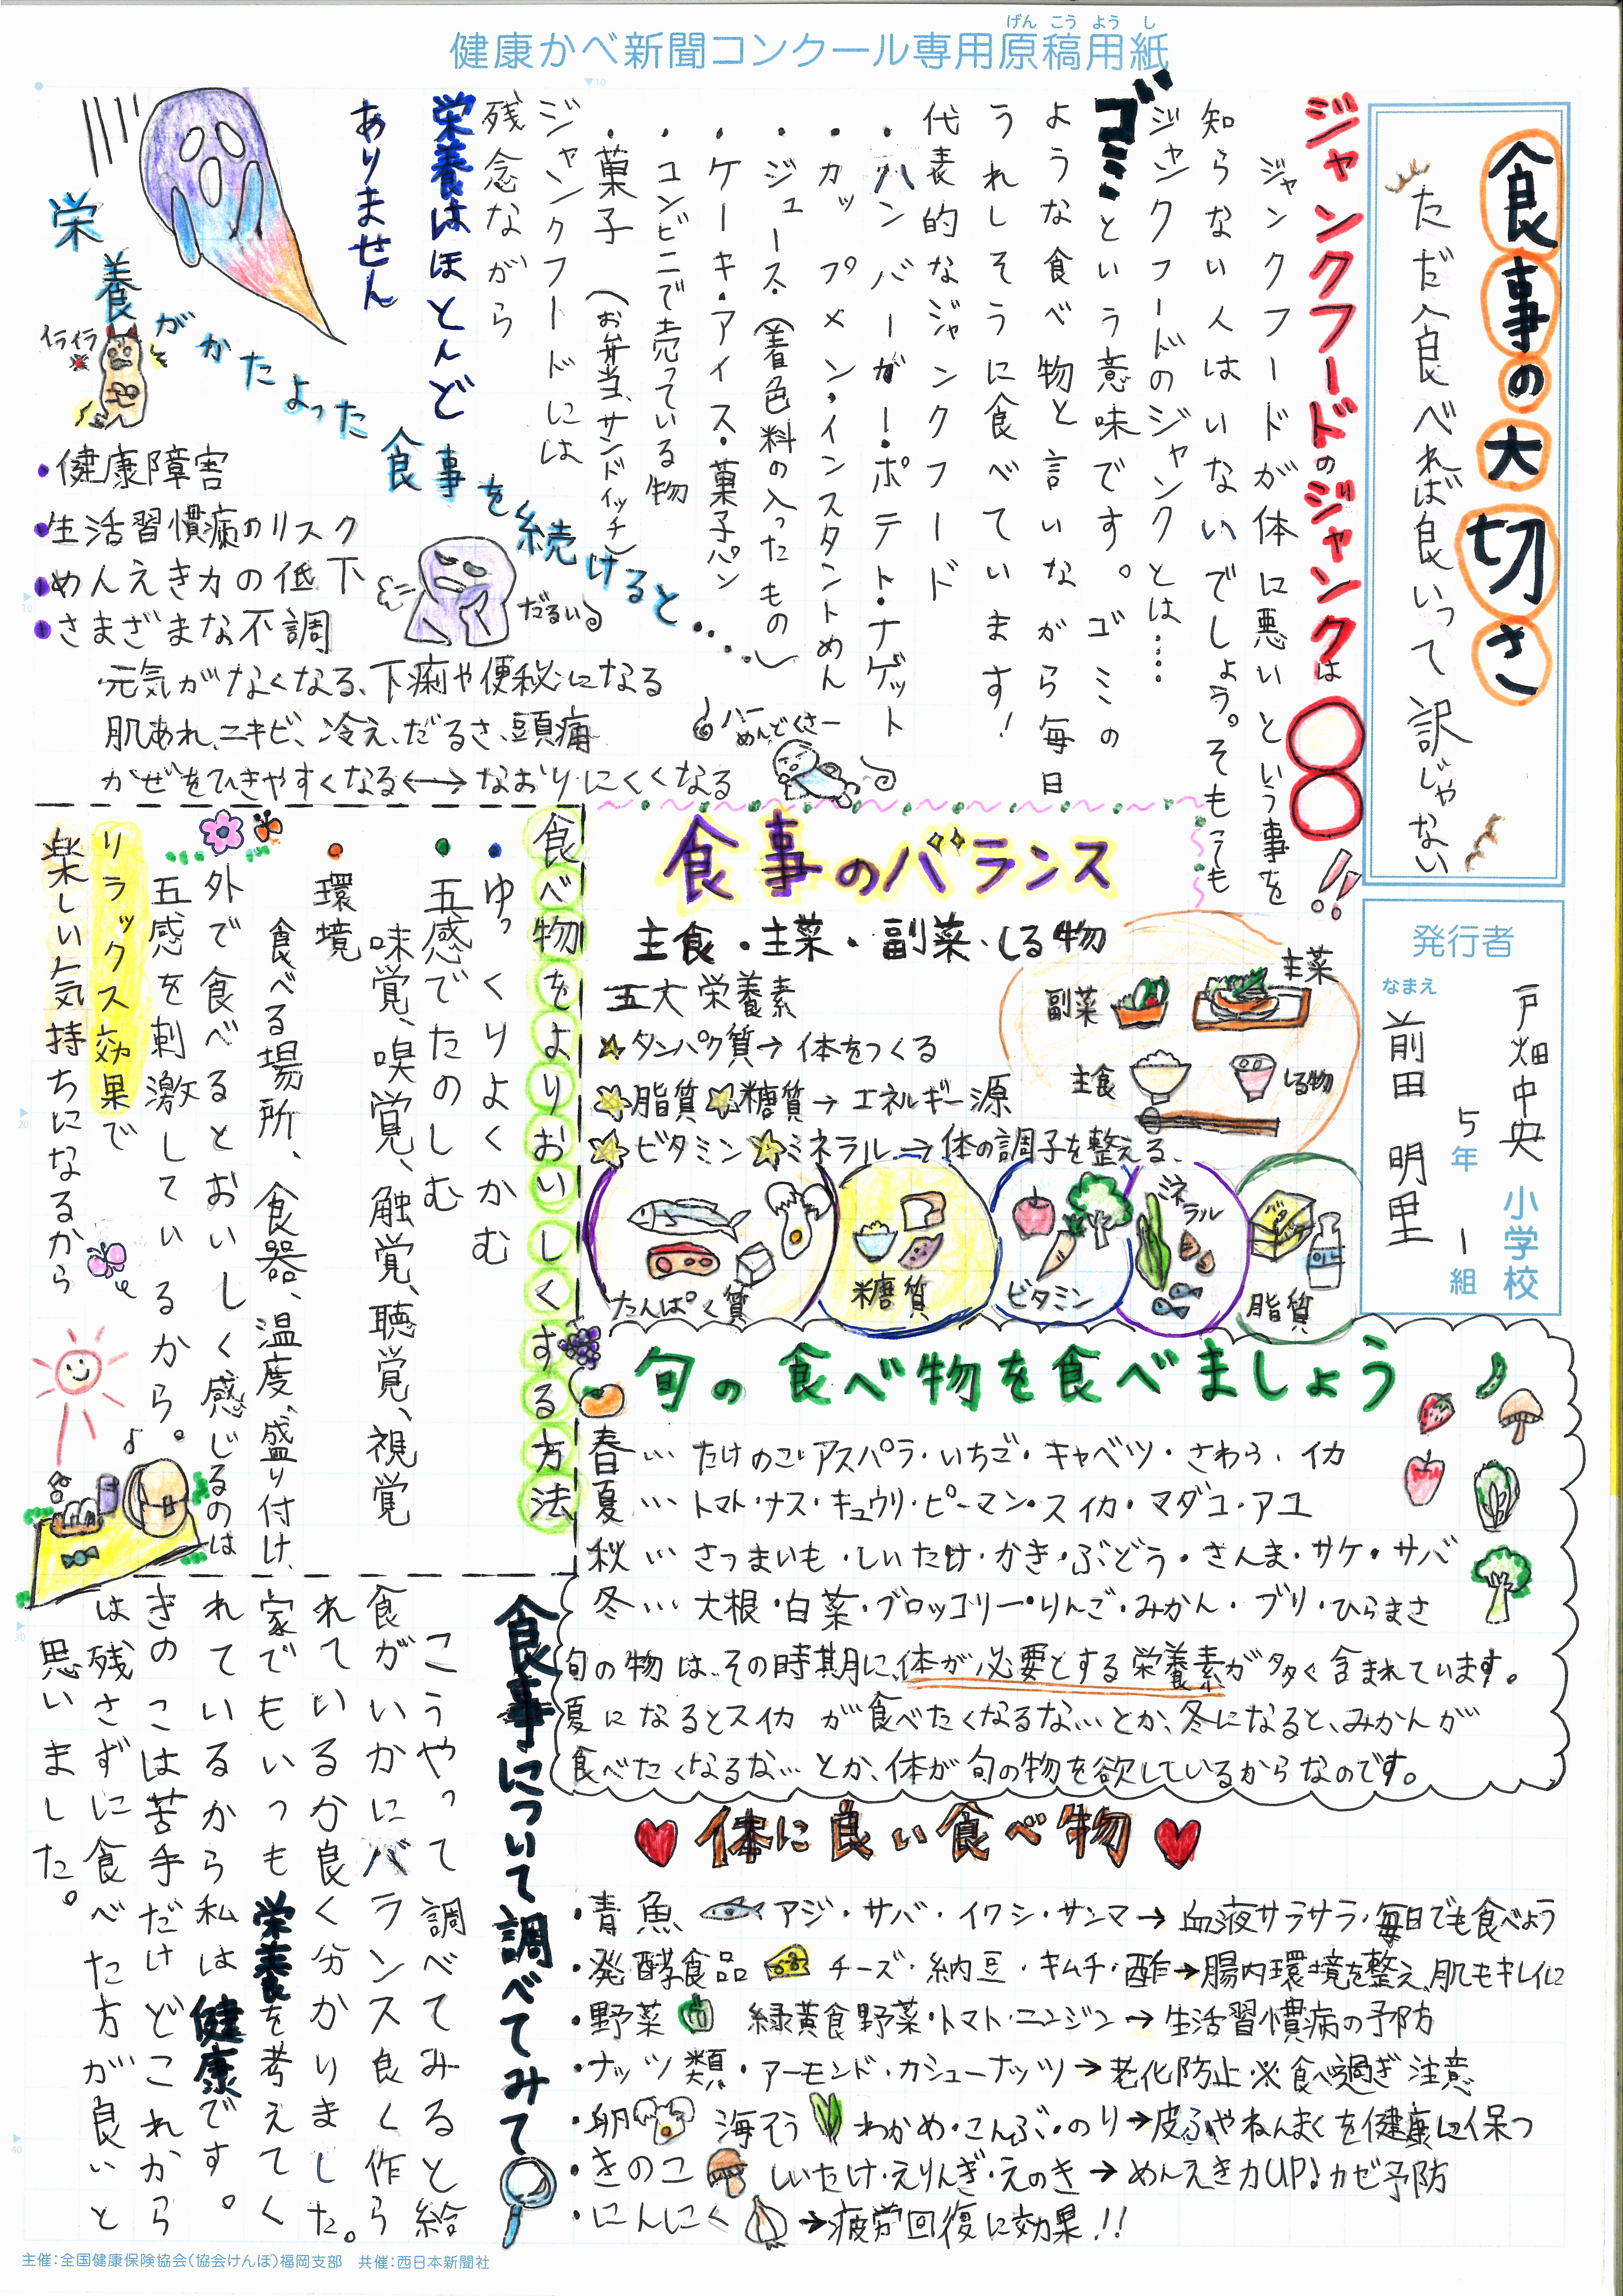 健康かべ新聞コンクール専用原稿用紙
げん こう よう し
食事の大切さ
ただ食べれば良いって訳じゃない
発行者
戸畑中央 小学校
5年 1組
なまえ
前田 明里
ジャンクフードのジャンクは〇〇!!
ジャンクフードが体に悪いという事を
知らない人はいないでしょう。そもそも
ジャンクフードのジャンクとは……
ゴミという意味です。ゴミの
ような食べ物と言いながら毎日
うれしそうに食べています!
代表的なジャンクフード
・ハンバーガー・ポテト・ナゲット
・カップメン・インスタントめん
・ジュース・(着色料の入ったもの)
・ケーキ・アイス・菓子パン
・コンビニで売っている物
・菓子 (お弁当、サンドイッチ)
ジャンクフードには
残念ながら
栄養はほとんど
ありません
栄養がかたよった食事を続けると・・・・・
イライラ
・健康障害
・生活習慣病のリスク
・めんえき力の低下
・さまざまな不調
だるい
・元気がなくなる、下痢や便秘になる
肌あれ、ニキビ、冷え、だるさ、頭痛
かぜをひきやすくなる↔なおりにくくなる
ハー
めんどくさー
食事のバランス
主食・主菜・副菜・しる物
五大栄養素
☆タンパク質→体をつくる
☆脂質☆糖質→エネルギー源
☆ビタミン☆ミネラル→体の調子を整える、
主菜
副菜
主食
しる物
たんぱく質
糖質
ビタミン
ミネラル
バター
脂質
食べ物をよりおいしくする方法
・ゆっくりよくかむ
・五感でたのしむ
味覚、嗅覚、触覚、聴覚、視覚
・環境
食べる場所、食器、温度、盛り付け、
外で食べるとおいしく感じるのは
五感を刺激しているから。
リラックス効果で
楽しい気持ちになるから
旬の食べ物を食べましょう
春… たけのこ・アスパラ・いちご・キャベツ・さわら・イカ
夏… トマト・ナス・キュウリ・ピーマン・スイカ・マダコ・アユ
秋… さつまいも・しいたけ・かき・ぶどう・さんま・サケ・サバ
冬… 大根・白菜・ブロッコリー・りんご・みかん・ブリ・ひらまさ
旬の物は、その時期に、体が必要とする栄養素が多く含まれています。
夏になるとスイカが食べたくなるな…とか、冬になると、みかんが
食べたくなるな…とか、体が旬の物を欲しているからなのです。
体に良い食べ物
・青魚 アジ・サバ・イワシ・サンマ→血液サラサラ・毎日でも食べよう
・発酵食品 チーズ・納豆・キムチ・酢→腸内環境を整え、肌もキレイに
・野菜 緑黄食野菜・トマト・ニンジン→生活習慣病の予防
・ナッツ類・アーモンド・カシューナッツ→老化防止※食べ過ぎ注意
・卵 海そう わかめ・こんぶ・のり→皮ふやねんまくを健康に保つ
・きのこ しいたけ・えりんぎ・えのき→めんえき力UP♪カゼ予防
・にんにく→疲労回復に効果!!
食事について調べてみて
こうやって調べてみると給
食がいかにバランス良く作ら
れているか良く分かりました。
家でもいつも栄養を考えてく
れているから私は健康です。
きのこは苦手だけどこれから
は残さずに食べた方が良いと
思いました。
主催:全国健康保険協会(協会けんぽ)福岡支部 共催:西日本新聞社